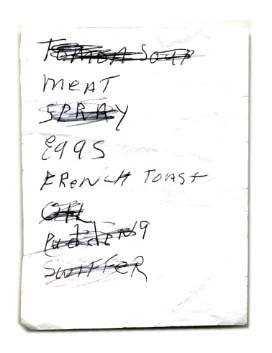 Tomoa Soup
meat
SPRAY
Eggs
FRENCH TOAST
OIL
Pudding
SWIFFER